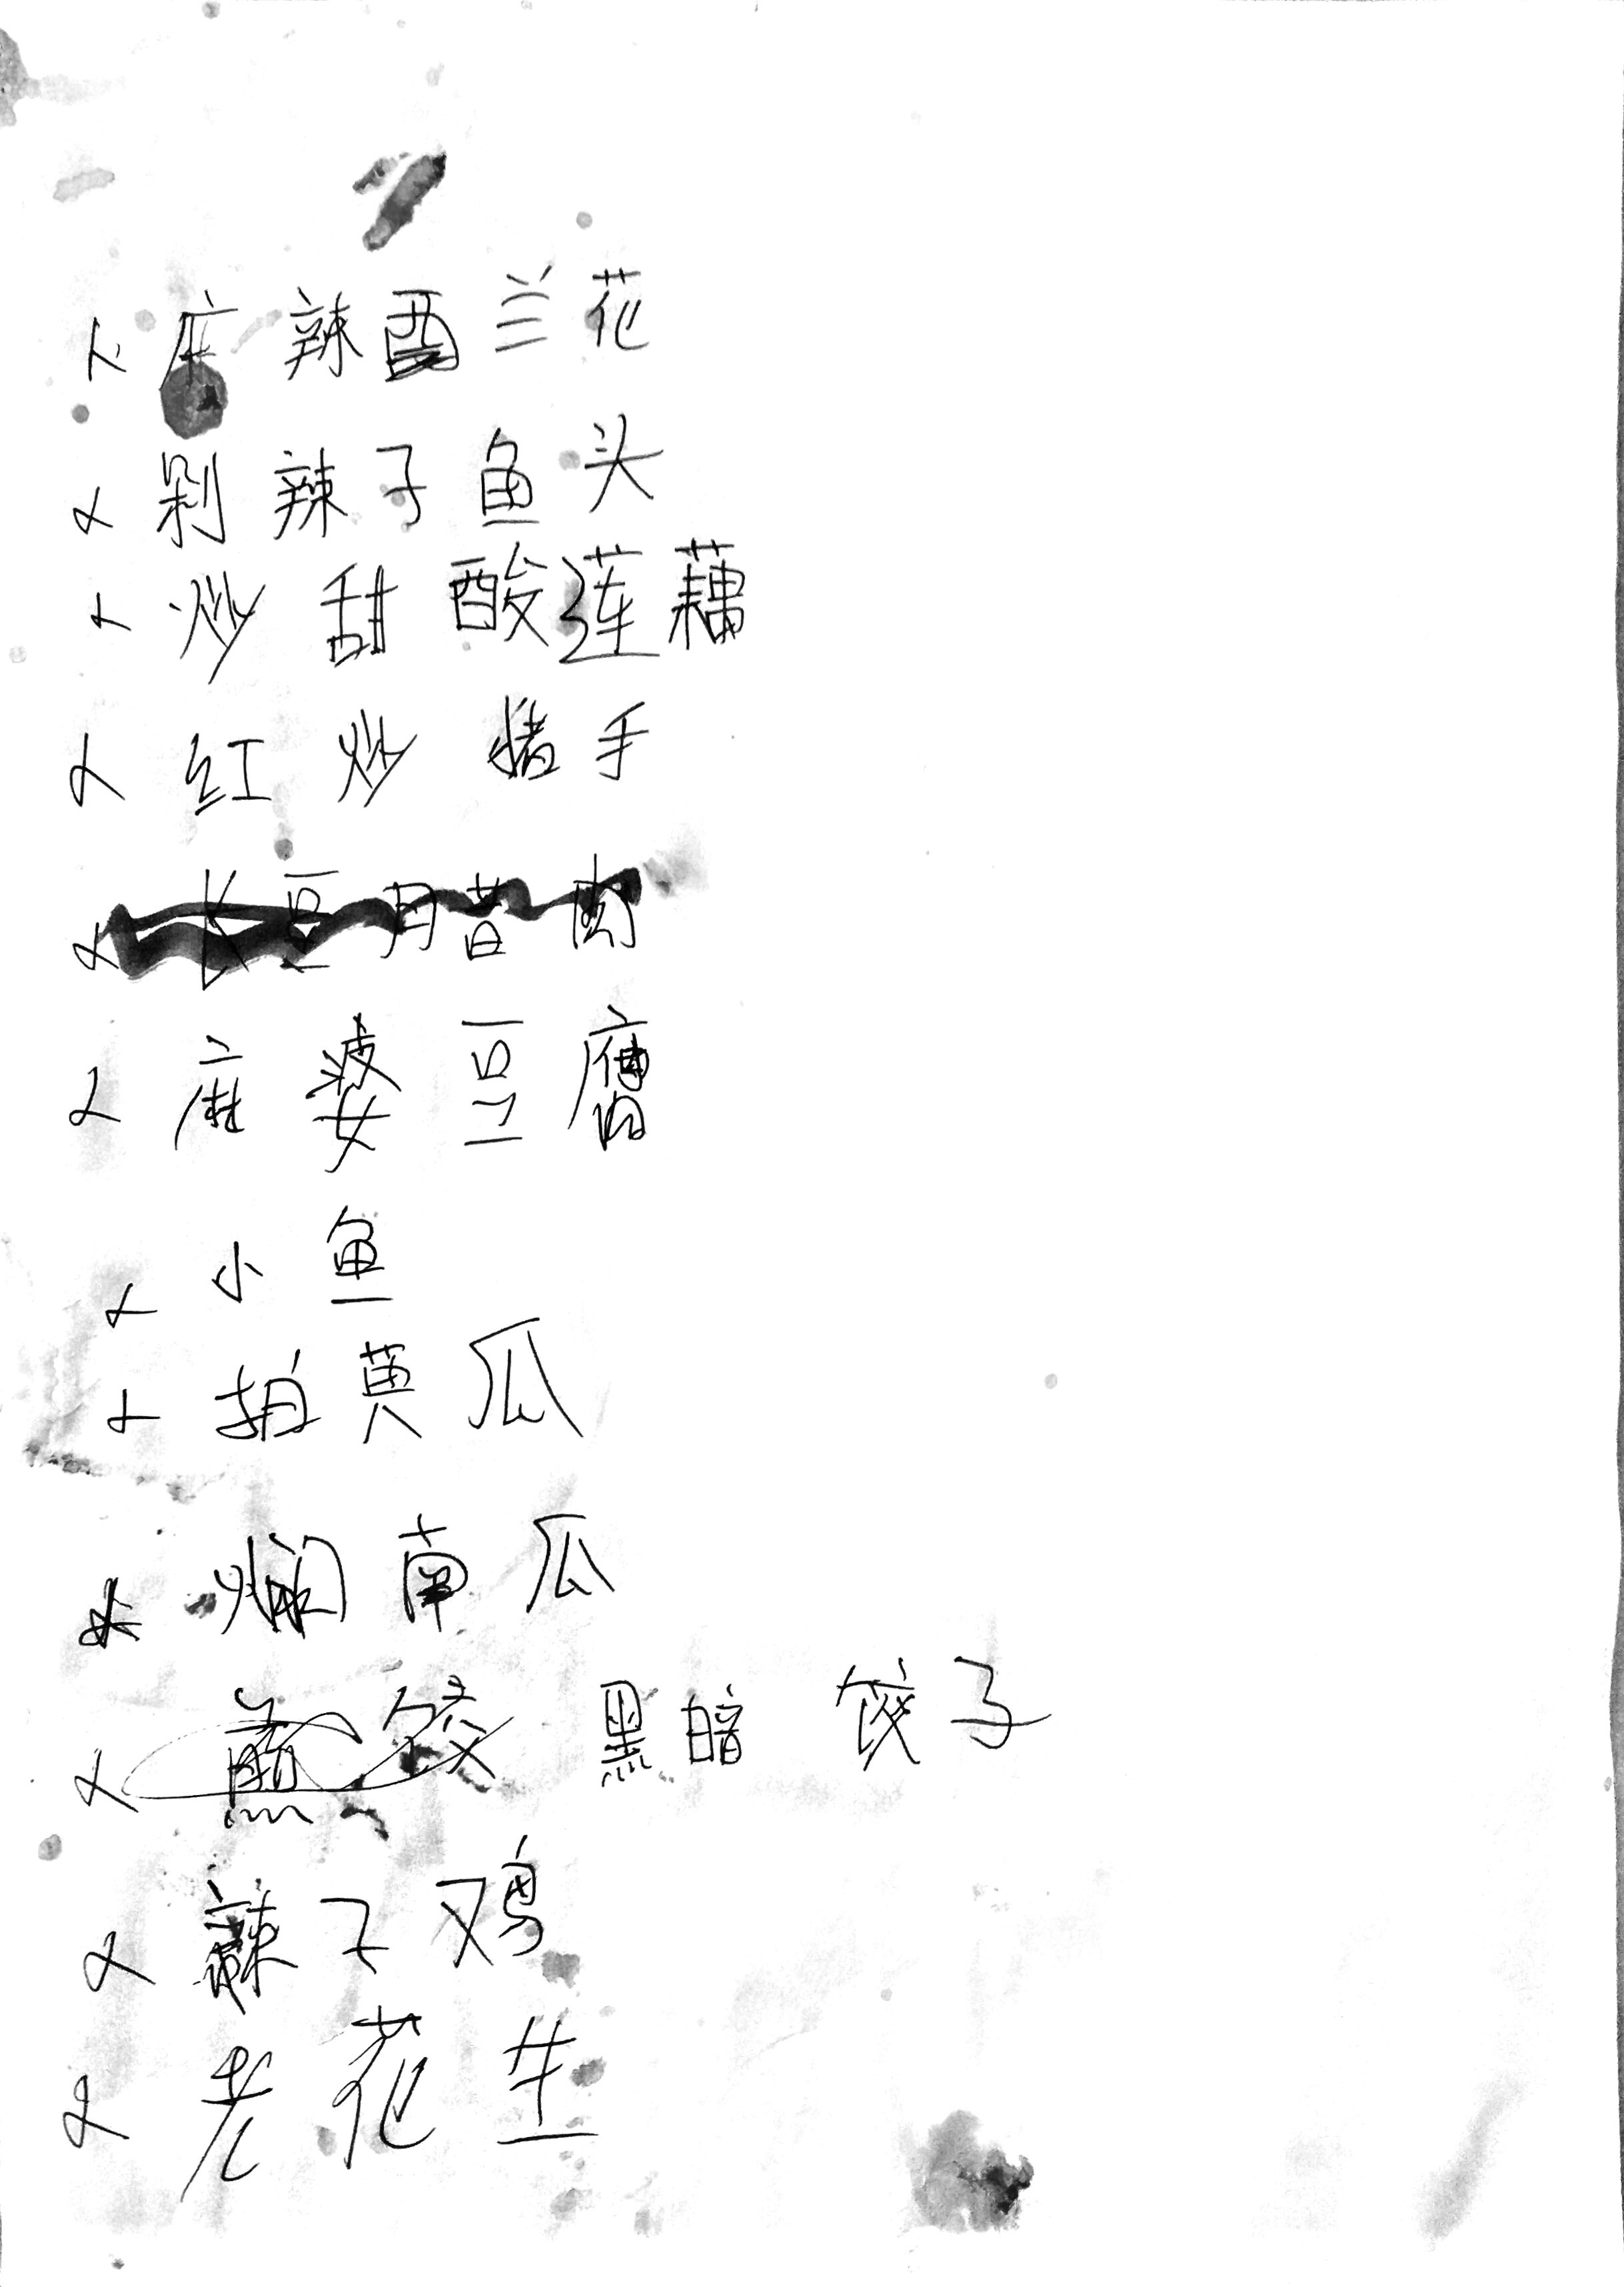 麻辣西兰花
剁辣子鱼头
炒甜酸莲藕
红炒猪手
长豆腊肉
麻婆豆腐
小鱼
拍黄瓜
焖南瓜
煎饺 黑暗 饺子
辣子鸡
老花生